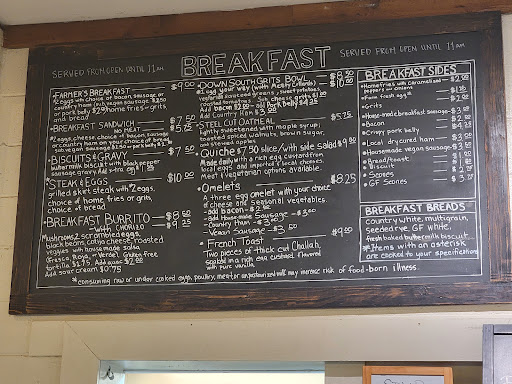 BREAKFAST
SERVED FROM OPEN UNTIL 11 AM
SERVED FROM OPEN UNTIL 11 AM
*FARMER'S BREAKFAST $9.00
2 eggs with choice of bacon, sausage or
country ham (sub vegan sausage
or pork belly home fries - grits,
and bread
*BREAKFAST SANDWICH — $7.50
NO MEAT — $5.75
2 eggs, cheese, choice of bacon, sausage
or country ham on your choice of bread
sub vegan sausage $2.50 or pork belly
*BISCUITS & GRAVY $7.50
buttermilk biscuit with black pepper
sausage gravy. Add xtra egg
*STEAK & EGGS $10.00
grilled skirt steak with 2 eggs,
choice of home fries or grits,
choice of bread
*BREAKFAST BURRITO — $8.50
WITH CHORIZO — $9.25
Mushrooms, 2 scrambled eggs,
black beans, colby cheese, roasted
veggies with house made salsa
(Fresca, Roja, or Verde). Gluten free
tortilla $1.75. Add guac $2.00
Add sour cream $0.75
*DOWN SOUTH GRITS BOWL
1 egg your way (with Meaty Collards)
vegetarian sauteed greens, sweet potatoes,
roasted tomatoes. Sub cheese grits $1.00
Add bacon Add Pork Belly
Add Country Ham
*STEEL CUT OATMEAL $5.25
lightly sweetened with maple syrup,
topped spiced walnuts, brown sugar,
and stewed apples
*QUICHE $7.50 slice/with side salad $9.00
Made daily with a rich egg custard from
local eggs and imported & local cheeses.
Meat & vegetarian options available.
*Omelets $8.25
A three egg omelet with your choice
of cheese and seasonal vegetables.
- add bacon
- Add House made Sausage — $3.00
- Country Ham — $3.00
- Vegan Sausage — $3.50
• French Toast $9.00
Two pieces of thick cut Challah,
soaked in a rich egg custard flavored
with pure vanilla
BREAKFAST SIDES
*Homefries with caramelized peppers & onions
*Farm fresh egg
*Grits
*House-made breakfast sausage
*Bacon
*Crispy pork belly
Local dry cured ham
*Housemade vegan sausage
*Bread/toast
• Biscuit
• Scones
• GF Scones
BREAKFAST BREADS
country white, multigrain,
seeded rye, GF white,
fresh baked buttermilk biscuit
*Items with an asterisk
are cooked to your specification
*consuming raw or under cooked eggs, poultry, meat or unpasteurized milk may increase risk of food-born illness.